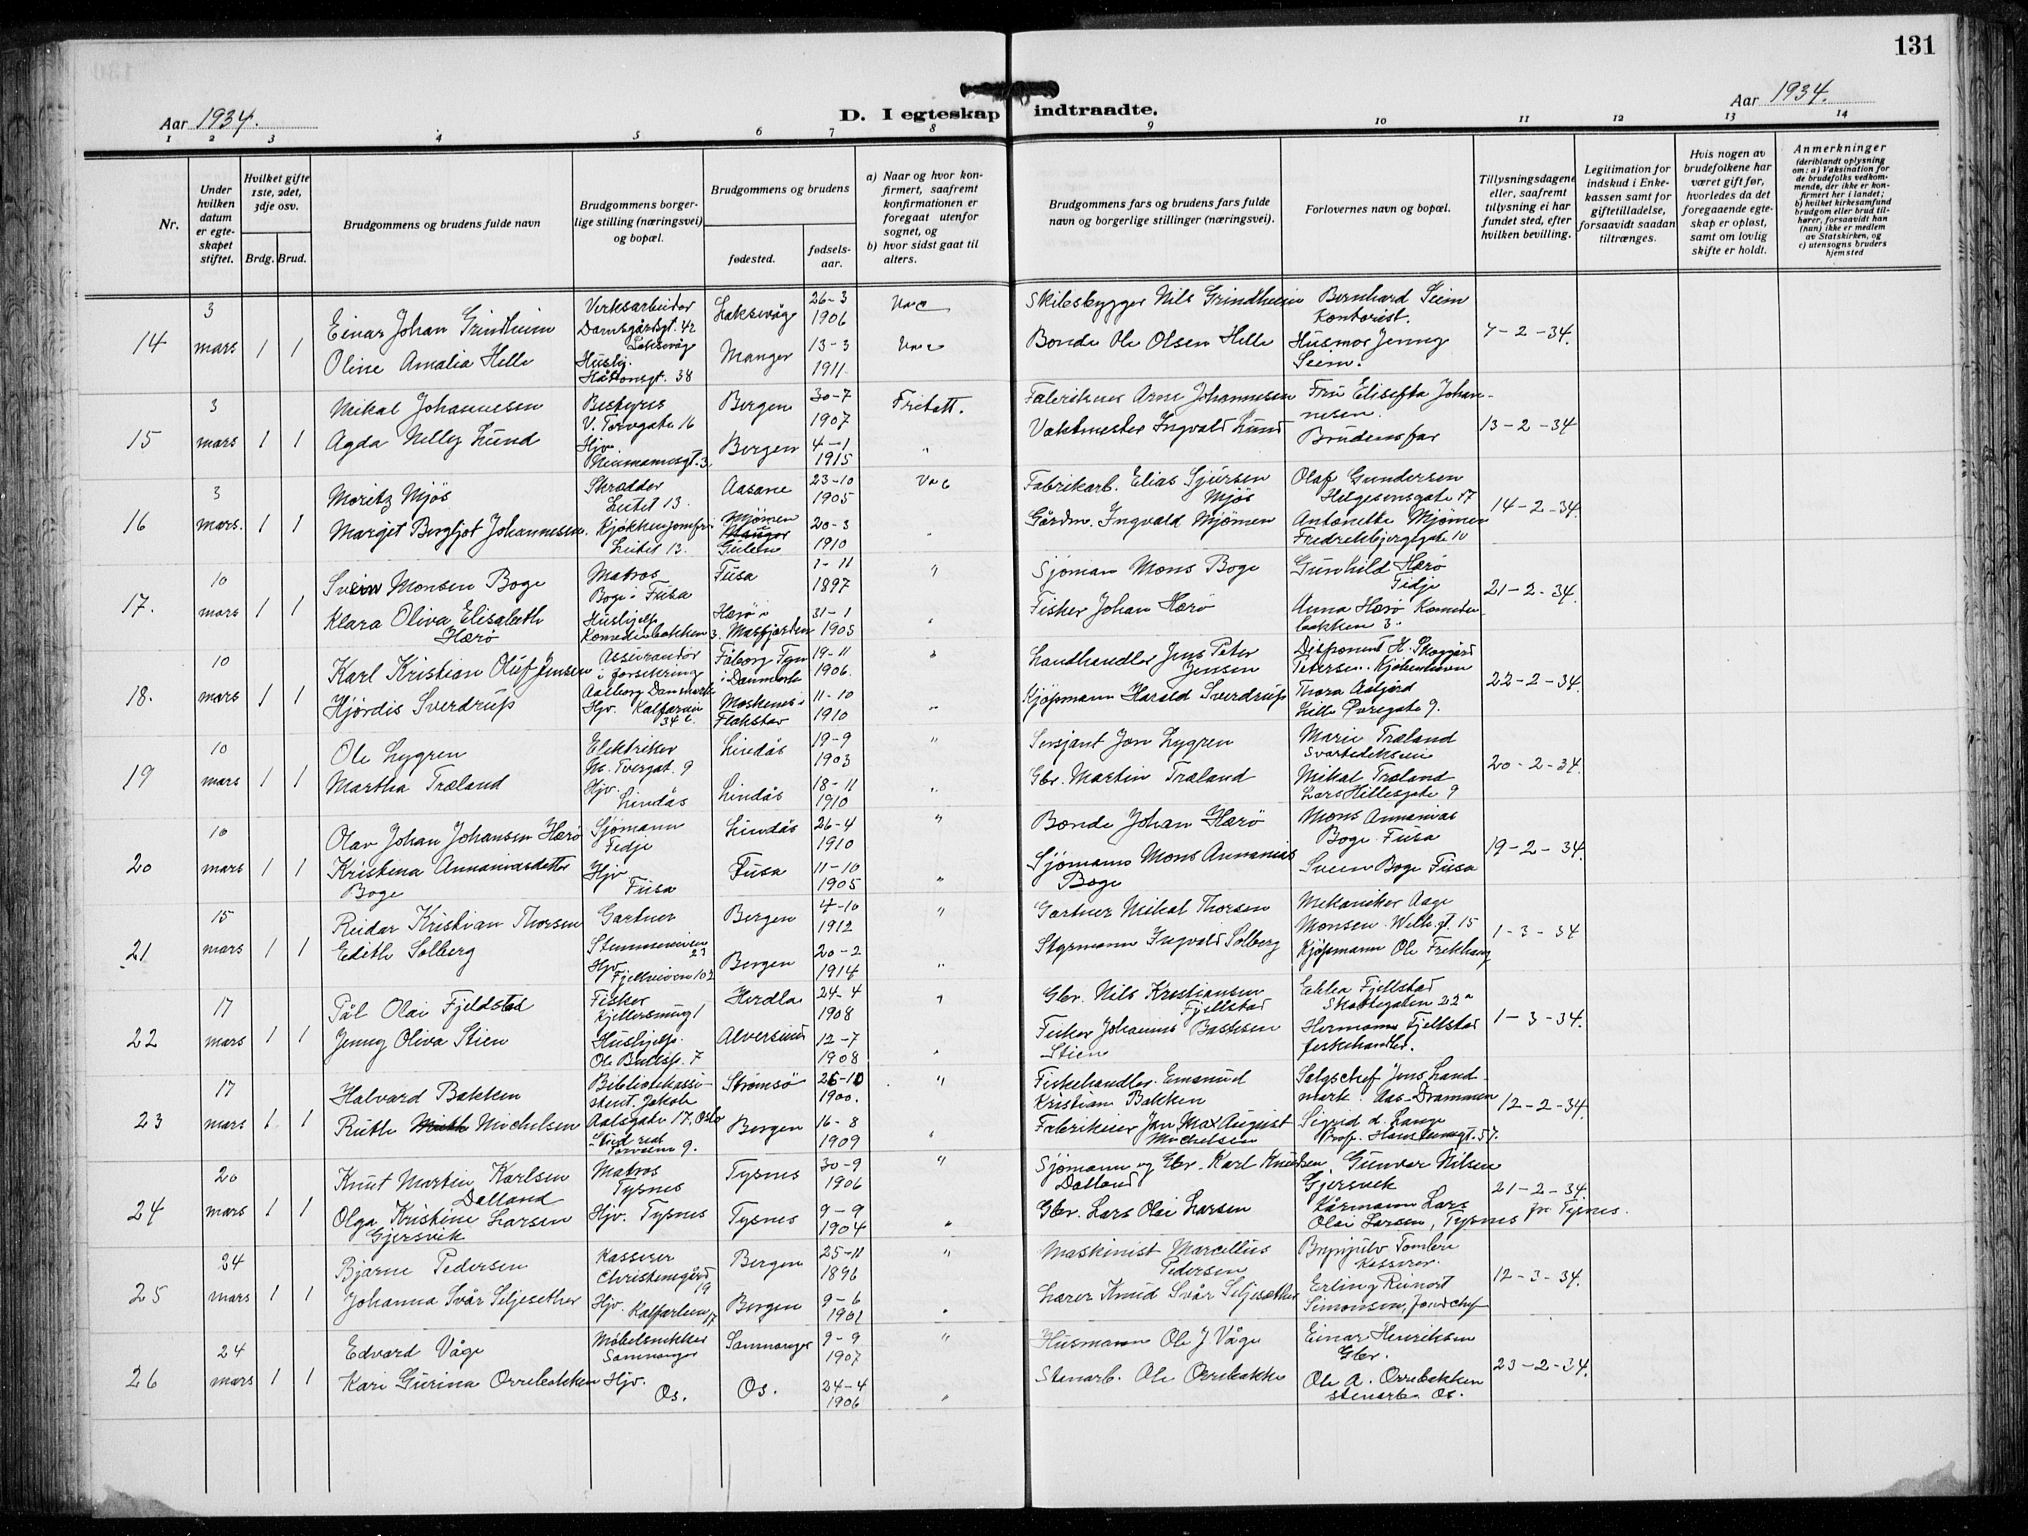 131
Aar 1934.
D. I egteskap indtraadte.
Aar 1934.
1 2 3 4 5 6 7 8 9 10 11 12 13 14
Nr.
Under hvilken datum er egteskapet stiftet.
Hvilket gifte 1ste, 2det, 3dje osv.
Brdg. Brud.
Brudgommens og brudens fulde navn
Brudgommens borgerlige stilling (næringsvei) og bopæl.
Brudgommens og brudens
fødested.
fødselsaar.
a) Naar og hvor konfirmert, saafremt konfirmationen er foregaat utenfor sognet, og
b) hvor sidst gaat til alters.
Brudgommens fars og brudens fars fulde navn og borgerlige stillinger (næringsvei).
Forlovernes navn og bopæl.
Tillysningsdagene eller, saafremt tillysning ei har fundet sted, efter hvilken bevilling.
Legitimation for indskud i Enkekassen samt for giftetilladelse, forsaavidt saadan tiltrænges.
Hvis nogen av brudefolkene har været gift før, hvorledes da det foregaaende egteskap er opløst, samt om lovlig skifte er holdt.
Anmerkninger
(deriblandt oplysning om: a) Vaksination for de brudefolks vedkommende, der ikke er konfirmert her i landet; b) hvilket kirkesamfund brudgom eller brud tilhører, forsaavidt han (hun) ikke er medlem av Statskirken, og c) utensogns bruders hjemsted
14 3 mars 1 1
Einar Johan Grindheim Verksarbeider Damsgårdsgt. 42 Laksevåg Laksevåg 26-3 1906 Vac Skibsbygger Nils Grindheim Bernhard Seim Kontorist.
Oline Amalia Helle Huslig. Håkonsgt. 38 Manger 13-3 1911. Vac Bonde Ole Olsen Helle Husmor Jenny Seim. 7-2-34.
15 3 mars 1 1
Mikal Johannesen Bestyrer V. Torvgate 16 Bergen 30-7 1907 Fritatt. Fabrikeier Arne Johannesen Fru Elisefta Johannesen.
Agda Nelly Lund Hjv. Neumannsgt. 3 Bergen 4-1 1915 " Vaktmester Ingvald Lund Brudensfar 13-2-34
16 3 mars. 1 1
Moritz Mjøs Skrædder Leitet 13. Aasane 23-10 1905 Vac Fabrikarb. Elias Sjursen Mjøs Olaf Gundersen Helgesensgate 17
Margit Bergljot Johannesen. Kjøkkenjomfr. Leitet 13. Mjømen Gulen 20-3 1910 " Gårdm. Ingvald Mjømen Antonette Mjømen Fredrekbjergsgate 10 14-2-34.
17. 10 mars 1 1
Svein Monsen Boge Matros Boge i Fusa Fusa 1-11 1897 " Sjøman Mons Boge Gunhild Herø Fedje
Klara Oliva Elisabeth Herø Hushjelp Komediebakken 3. Herø i Masfjorden 31-1 1905 " Fisker Johan Herø Anna Herø Komediebakken 3. 21-2-34.
18. 10 mars 1 1
Karl Kristian Oluf Jensen Assurandør i forsikring Aalborg Danmark Fåborg Fyn i Danmark 19-11 1906. " Landhandler Jens Peter Jensen Disponent H. Skoggård Petersen. Kjøbenhavn
Hjørdis Sverdrup Hjv. Kalfarvei 34 c. Moskenes i Flakstad 11-10 1910 " Kjøpmann Harald Sverdrup Thora Aafjord Lille Øvregate 9. 22-2-34.
19 10 mars 1 1
Ole Lygren Elektriker M. Tvergt. 9 Lindås 19-9 1903 " Sersjant Jon Lygren Marie Træland Svartediksvei
Martha Træland Hjv. Lindås Lindås 18-11 1910 " Gbr. Martin Træland Mikal Træland Lars Hillesgate 9 20-2-34.
20 10 mars 1 1
Olav Johan Johansen Herø Sjømann Fedje Lindås 26-4 1910 " Bonde Johan Herø Mons Annanias Boge Fusa
Kristina Annaniasdatter Boge Hjv Fusa Fusa 11-10 1905 " Sjømann Mons Annanias Boge Svein Boge Fusa 19-2-34.
21 15 mars 1 1
Reidar Kristian Thorsen Gartner Stemmeveien 23 Bergen 4-10 1912 " Gartner Mikal Thorsen Mekaniker Aage Monsen Welh. gt. 15
Edith Solberg Hjv Fjellveien 102 Bergen 20-2 1914 " Styrmann Ingvald Solberg Kjøpmann Ole Frekhaug 1-3-34
22 17 mars 1 1
Pål Olai Fjeldstad Fisker Kjellersmug 1 Herdla 24-4 1908 " Gbr. Nils Kristiansen Fjellstad Ebbea Fjellstad Skottegaten 22a
Jenny Oliva Stien Hushjelp. Ole Bullspl. 7 Alversund 12-7 1908 " Fisker Johannes Bastesen Stien Hermann Fjellstad fiskehandler. 1-3-34.
23 17 mars 1 1
Halvard Bakken Bibliotekassistent. Jakob Aalsgate 17, Oslo Strømsø 26-10 1900. " Fiskehandler. Emanuel Kristian Bakken Salgschef Jens Landmark. Aas-Drammen
Ruth Michelsen Torvalm 9. Bergen 16-8 1909 " Fabrikeier Jan Max August Michelsen Sigrid d. Lange Prof. Hanstensgt. 57. 12-2-34.
24 20 mars 1 1
Knut Martin Karlsen Dalland Matros Tysnes Tysnes 30-9 1906 " Sjømann og Gbr. Karl Knudsen Dalland Gunvar Nilsen Gjersvik
Olga Kristine Larsen Gjersvik Hjv. Tysnes Tysnes 9-9 1904 " Gbr. Lars Olai Larsen Kårmann Lars Olai Larsen, Tysnes 21-2-34. fr. Tysnes.
25 24 mars 1 1
Bjarne Pedersen Kasserer Christinegård 19 Bergen 25-11 1896 " Maskinist Marcellius Pedersen Brynjulv Tombre Kasserer.
Johanna Svår Seljesether Hjv. Kalfarlien 17 Bergen 9-6 1901 " Lærer Knud Svår Seljesæther Erling Reinert Simonsen, fondchef 12-3-34.
26 24 mars 1 1
Edvard Våge Møbelsnekker Samnanger Samnanger 9-9 1907 " Husmann Ole J Våge Einar Henriksen Gbr.
Kari Gurina Orrebakken Hjv. Os. Os. 24-4 1906 " Stenarb. Ole Orrebakke Ole A. Orrebakken stenarb. Os. 23-2-34.